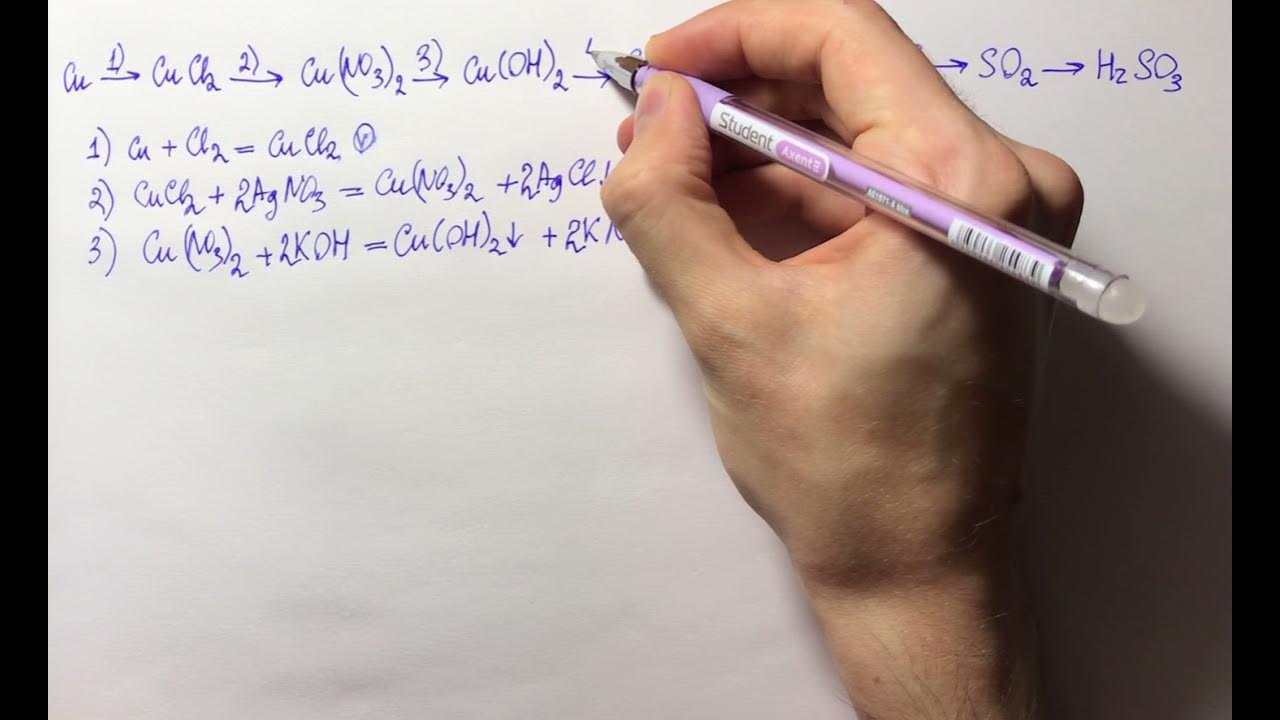 Cu 1)→ CuCl2 2)→ Cu(NO3)2 3)→ Cu(OH)2 → → SO2 → H2SO3
1) Cu + Cl2 = CuCl2
2) CuCl2 + 2AgNO3 = Cu(NO3)2 + 2AgCl↓
3) Cu(NO3)2 + 2KOH = Cu(OH)2↓ + 2KN
Student Axent